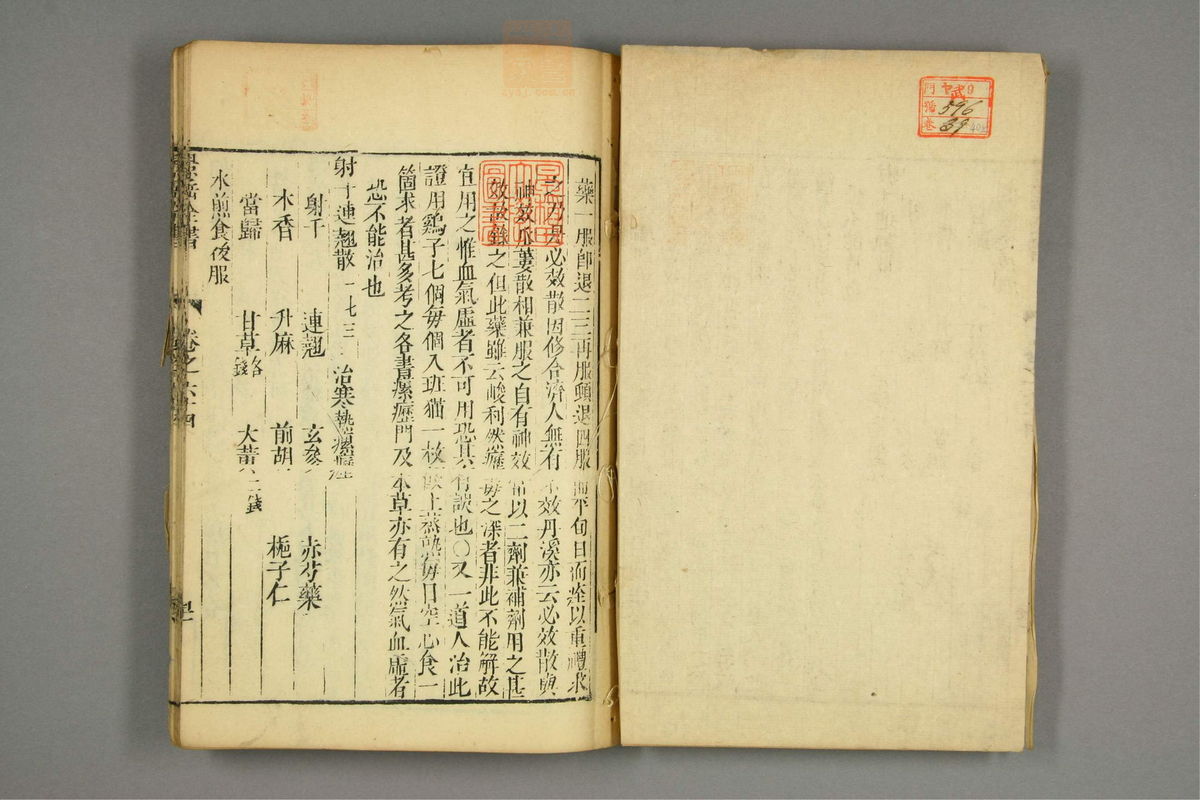 藥一服卽退二三再服頓退四服而平旬日而痊以重禮求
之乃是必效散因修合濟人無有不效丹溪亦云必效散與
神效瓜蔞散相兼服之自有神效常以二劑兼補劑用之甚
效故錄之但此藥雖云峻利然癧毒之深者非此不能解故
宜用之惟血氣虛者不可用恐其有誤也〇又一道人治此
證用鷄子七個每個入班猫一枚飯上蒸熟每日空心食一
箇求者甚多考之各書瘰癧門及本草亦有之然氣血虛者
恐不能治也
射干連翹散 一七三 治寒熱瘰癧
射干 連翹 玄參 赤芍藥
木香 升麻 前胡 梔子仁
當歸 甘草各錢 大黃二錢
水煎食後服
景岳全書 卷之六十四
門 9
號 596
卷 39